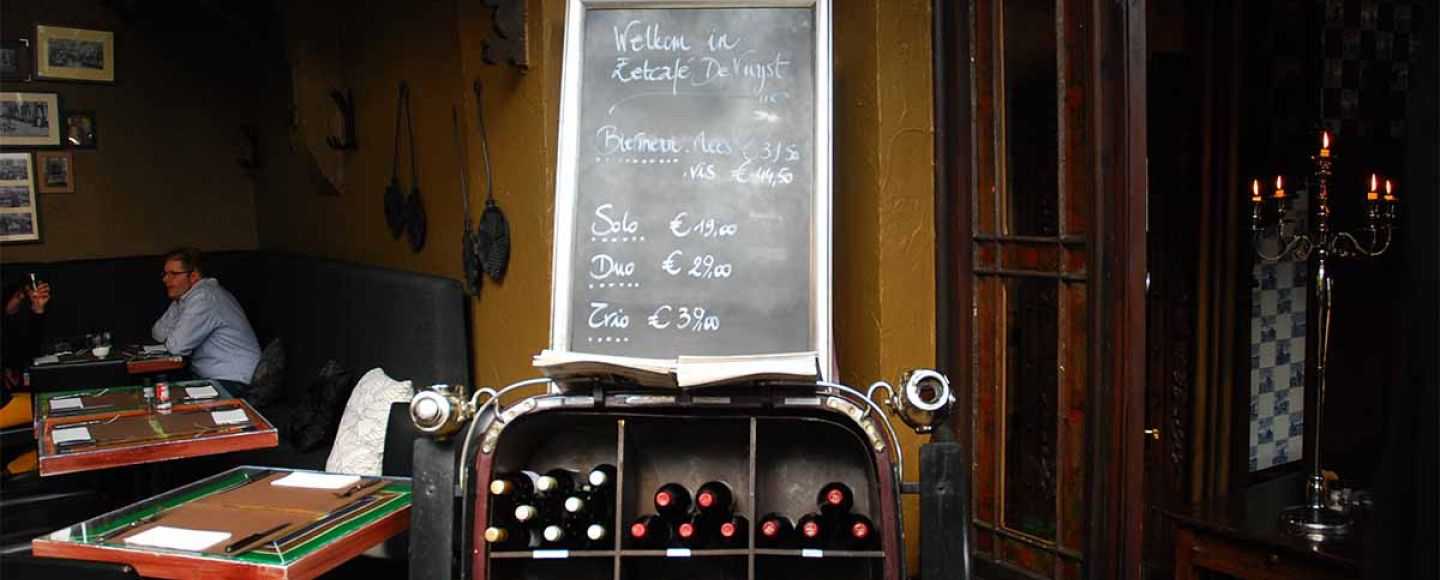 Welkom in
Eetcafé De Vuyst
Biermenu: vlees € 37,50
vis € 44,50
Solo € 19,00
Duo € 29,00
Trio € 39,00